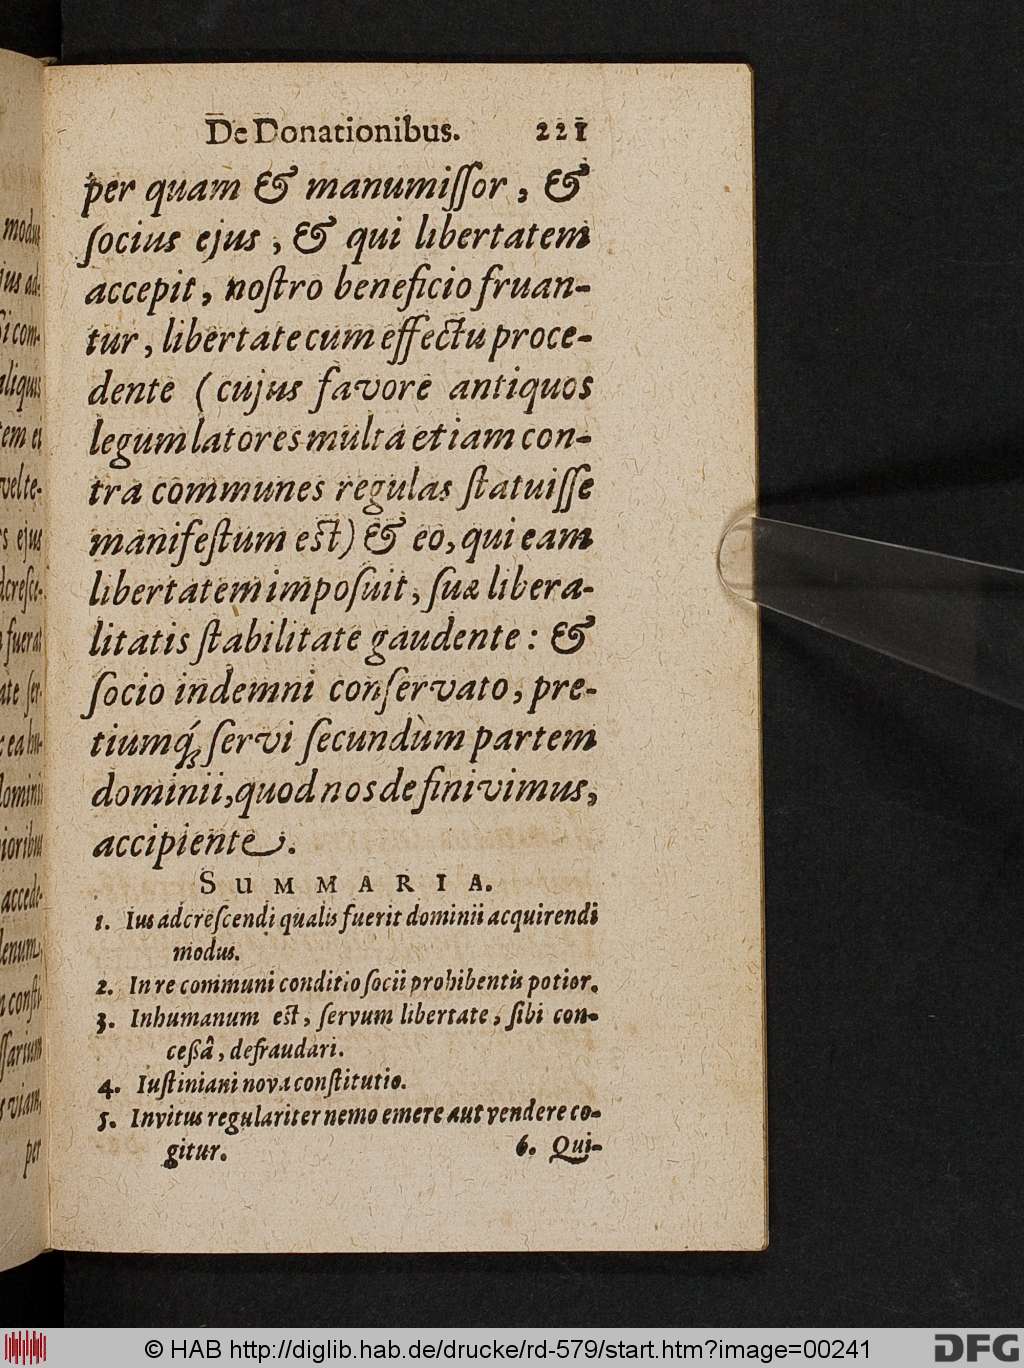 De Donationibus. 221
per quam & manumiſſor, &
ſocius ejus, & qui libertatem
accepit, noſtro beneficio fruan-
tur, libertate cum effectu proce-
dente (cujus favore antiquos
legum latores multa etiam con-
tra communes regulas ſtatuiſſe
manifeſtum est) & eo, qui eam
libertatem impoſuit, ſuæ libera-
litatis ſtabilitate gaudente: &
ſocio indemni conſervato, pre-
tiumq́; ſervi ſecundùm partem
dominii, quod nos definivimus,
accipiente.
SUMMARIA.
1. Ius adcreſcendi qualis fuerit dominii acquirendi
modus.
2. In re communi conditio ſocii prohibentis potior.
3. Inhumanum est, ſervum libertate, ſibi con-
ceßâ, defraudari.
4. Iuſtiniani nova conſtitutio.
5. Invitus regulariter nemo emere aut vendere co-
gitur. 6. Qui-
ius ad-
Si com-
aliquis
tem ei
vel te-
rs ejus
dcreſce-
fuerat
ate ſer-
dominii
accede-
per
© HAB http://diglib.hab.de/drucke/rd-579/start.htm?image=00241
DFG